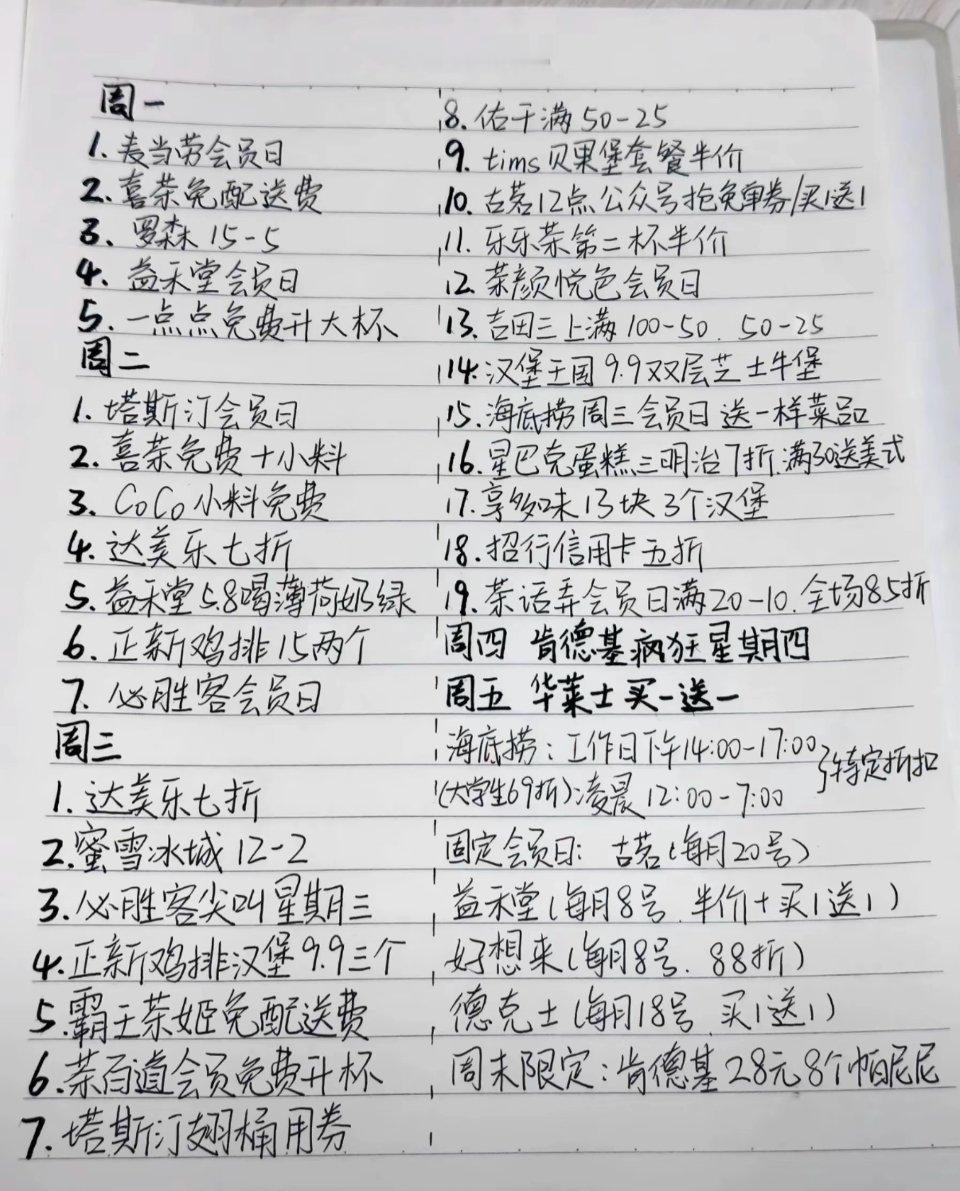 周一
1. 麦当劳会员日
2. 喜茶免配送费
3. 罗森 15-5
4. 益禾堂会员日
5. 一点点免费升大杯
周二
1. 塔斯汀会员日
2. 喜茶免费+小料
3. CoCo 小料免费
4. 达美乐七折
5. 益禾堂5.8喝薄荷奶绿
6. 正新鸡排15两个
7. 必胜客会员日
周三
1. 达美乐七折
2. 蜜雪冰城 12-2
3. 必胜客尖叫星期三
4. 正新鸡排汉堡9.9三个
5. 霸王茶姬免配送费
6. 茶百道会员免费升杯
7. 塔斯汀翅桶用券
8. 佑干满50-25
9. tims贝果堡套餐半价
10. 古茗12点公众号抢免单券/买1送1
11. 乐乐茶第二杯半价
12. 茶颜悦色会员日
13. 吉田三上满100-50. 50-25
14. 汉堡王国9.9双层芝士牛堡
15. 海底捞周三会员日送一样菜品
16. 星巴克蛋糕.三明治7折.满30送美式
17. 享多味13块3个汉堡
18. 招行信用卡五折
19. 茶话弄会员日满20-10.全场85折
周四 肯德基疯狂星期四
周五 华莱士买一送一
海底捞:工作日下午14:00-17:00
(大学生69折)凌晨12:00-7:00 }特定折扣
固定会员日: 古茗(每月20号)
益禾堂(每月8号.半价+买1送1)
好想来(每月8号. 88折)
德克士(每月18号 买1送1)
周末限定:肯德基28元8个帕尼尼